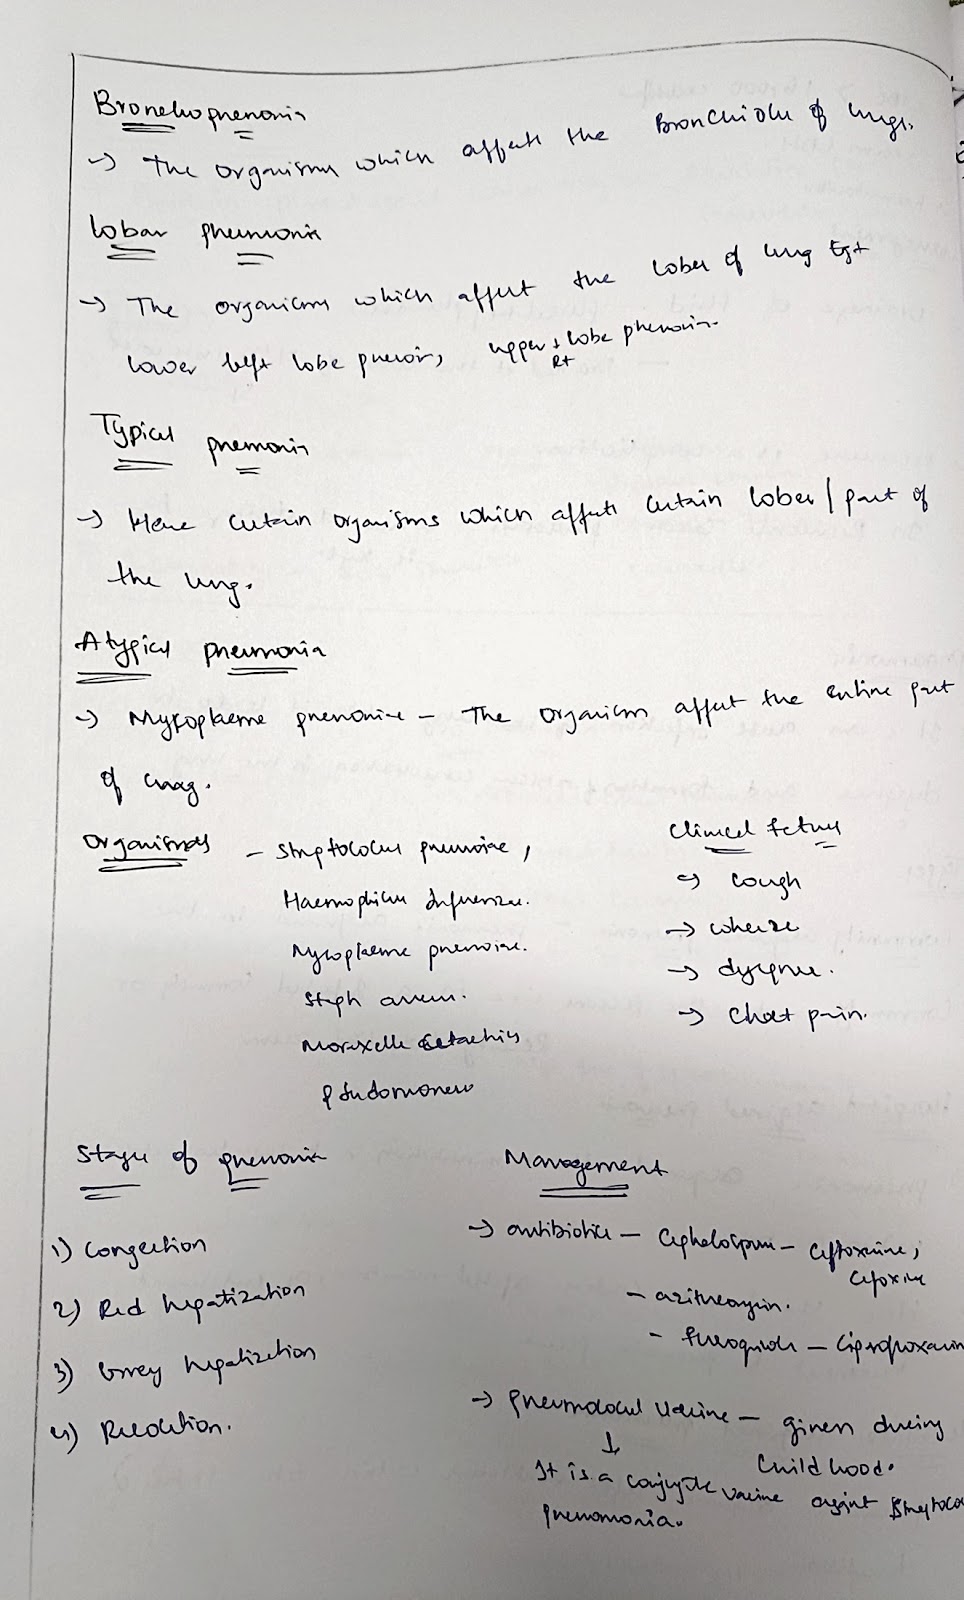 Bronchopnemonia
→ The organisms which affects the Bronchiole of lungs.
Lobar pneumonia
→ The organisms which affect the lobes of lung Eg+
lower left lobe pnemonia, upper Rt lobe pnemonia.
Typical pnemonia
→ Here certain organisms which affects certain lobes / part of
the lung.
Atypical pneumonia
→ Mycoplasma pnemoniae - The organism affect the entire part
of lung.
Organisms - Streptococcus pnemoniae,
Haemophilus Influenzae.
Mycoplasma pnemoniae.
Staph aureus.
Moraxella
pseudomonas
Clinical fetures
→ cough
→ wheeze
→ dyspnea.
→ Chest pain.
Stages of pnemonia
1) Congestion
2) Red hepatization
3) Grey hepatization
4) Resolution.
Management
→ antibiotics - Cephalosporin -
- azithromycin.
- - Ciprofloxacin
→ pneumococal Vaccine - given during
Childhood.
↓
It is a conjugate vaccine against Streptoco
pnemomonia.